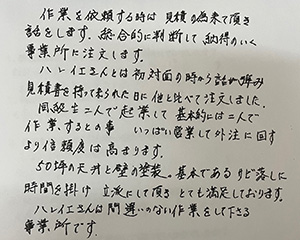 作業を依頼する時は 見積の為来て頂き
話をします。総合的に判断して納得のいく
事業所に注文します。
ハレイエさんとは初対面の時から話が弾み
見積書を持って来られた日に他と比べて注文しました。
同級生二人で起業して 基本的には二人で
作業、するとの事 いっぱい営業して外注に回す
より信頼度は高まります。
50坪の天井と壁の塗装、基本であるサビ落しに
時間を掛け 立派にして頂き とても満足しております。
ハレイエさんは間違いのない作業をして下さる
事業所です。